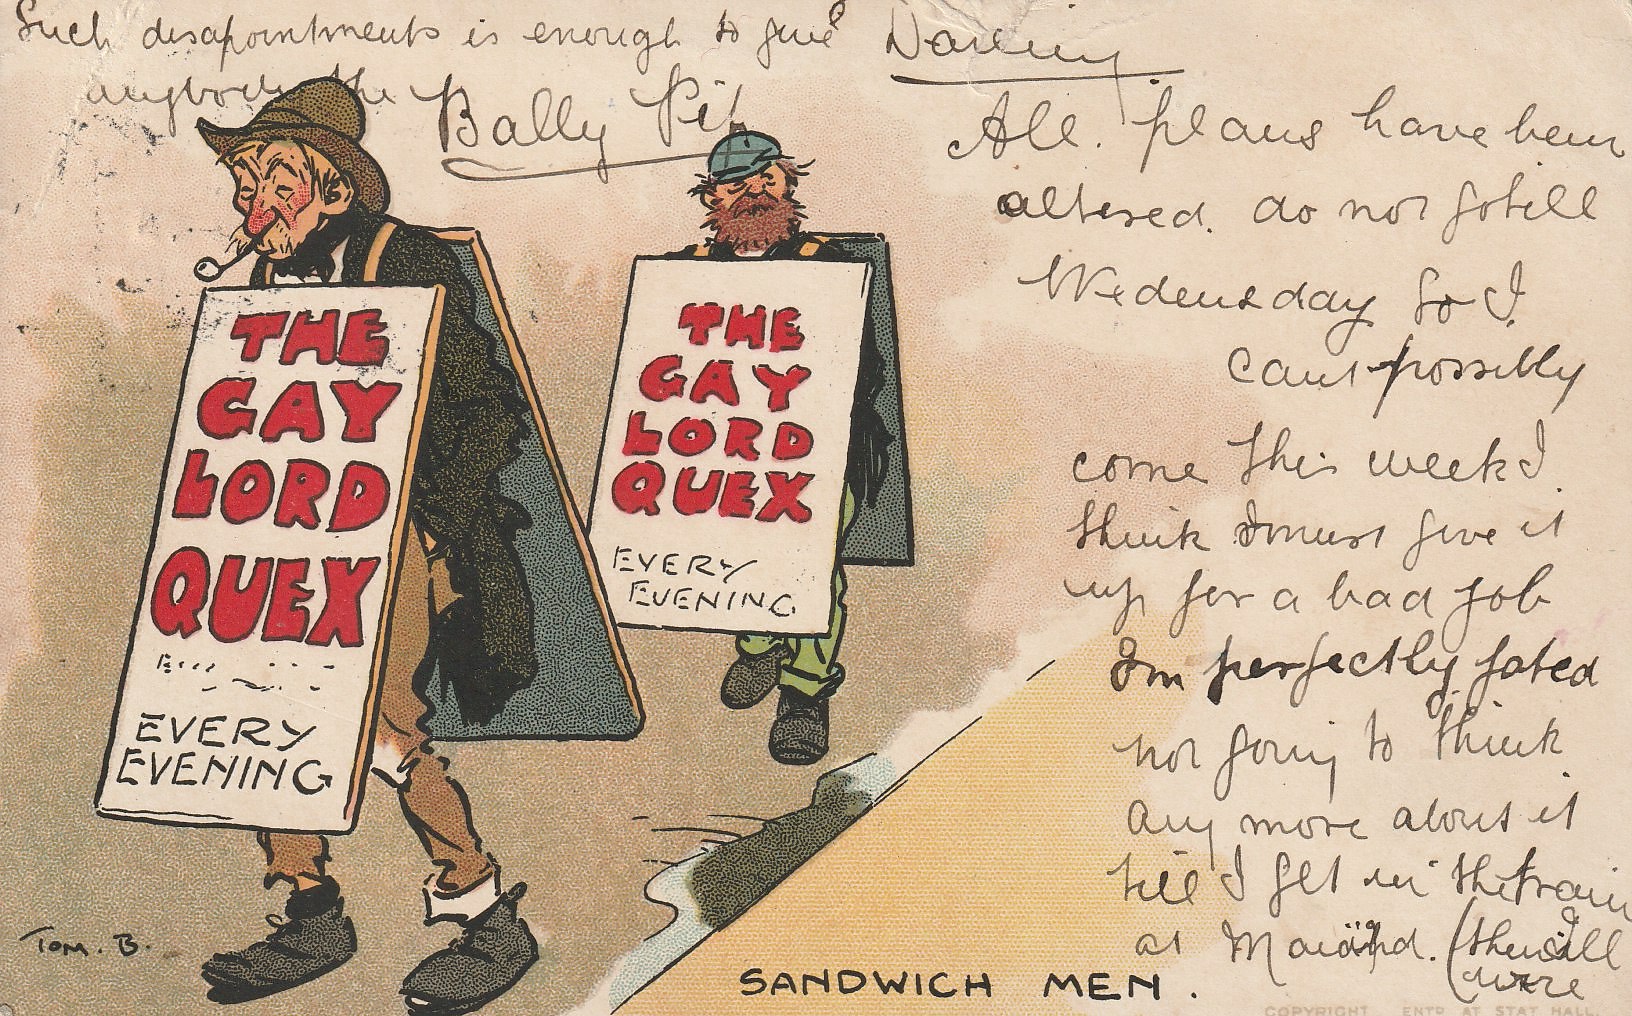 Such disapointments is enough to give
anybody the Bally Pip
Darling
All. plans have been
altered. do not go till
Wedensday So I
cant possibly
come this week I
think I must give it
up for a bad job
Im perfectly fated
not going to think
any more about it
till I get in the train
at
THE
GAY
LORD
QUEX
EVERY
EVENING
THE
GAY
LORD
QUEX
EVERY
EVENING
TOM. B.
SANDWICH MEN.
COPYRIGHT ENTD AT STAT HALL.